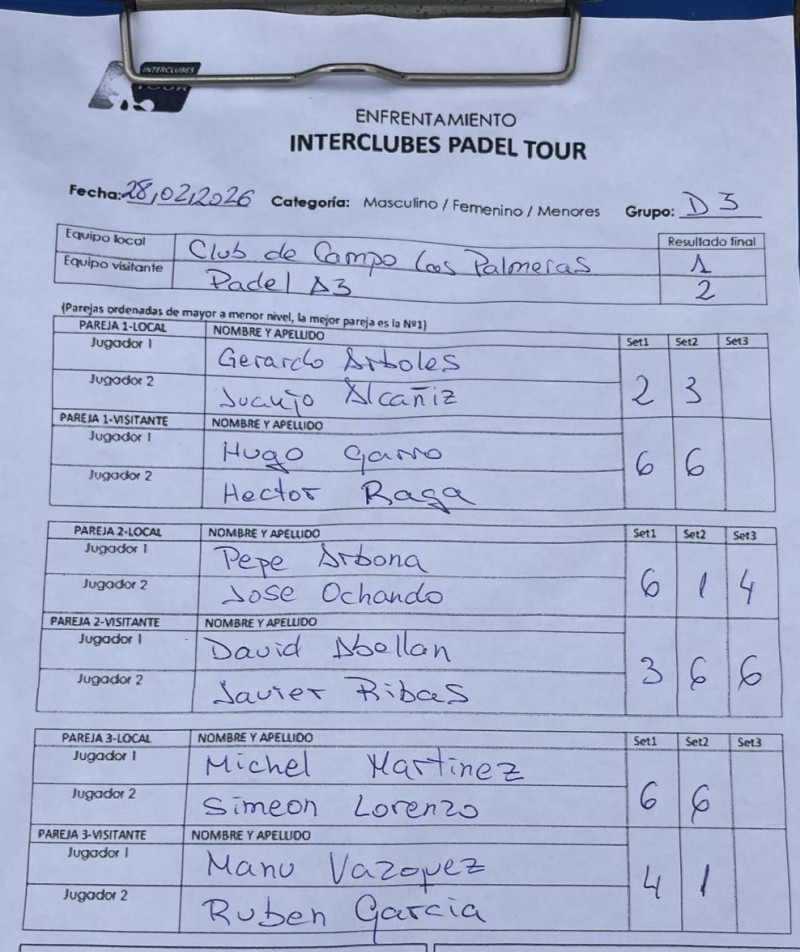 INTERCLUBES
TOUR
ENFRENTAMIENTO
INTERCLUBES PADEL TOUR
Fecha: 28,02,2026 Categoría: Masculino / Femenino / Menores Grupo: D3
Equipo local Club de Campo Las Palmeras Resultado final 1
Equipo visitante Padel A3 2
(Parejas ordenadas de mayor a menor nivel, la mejor pareja es la Nº1)
PAREJA 1-LOCAL NOMBRE Y APELLIDO Set1 Set2 Set3
Jugador 1 Gerardo Arboles
Jugador 2 Juanjo Alcañiz 2 3
PAREJA 1-VISITANTE NOMBRE Y APELLIDO
Jugador 1 Hugo Garro 6 6
Jugador 2 Hector Raga
PAREJA 2-LOCAL NOMBRE Y APELLIDO Set1 Set2 Set3
Jugador 1 Pepe Arbona
Jugador 2 Jose Ochando 6 1 4
PAREJA 2-VISITANTE NOMBRE Y APELLIDO
Jugador 1 David Abellan 3 6 6
Jugador 2 Javier Ribas
PAREJA 3-LOCAL NOMBRE Y APELLIDO Set1 Set2 Set3
Jugador 1 Michel Martinez
Jugador 2 Simeon Lorenzo 6 6
PAREJA 3-VISITANTE NOMBRE Y APELLIDO
Jugador 1 Manu Vazquez 4 1
Jugador 2 Ruben Garcia